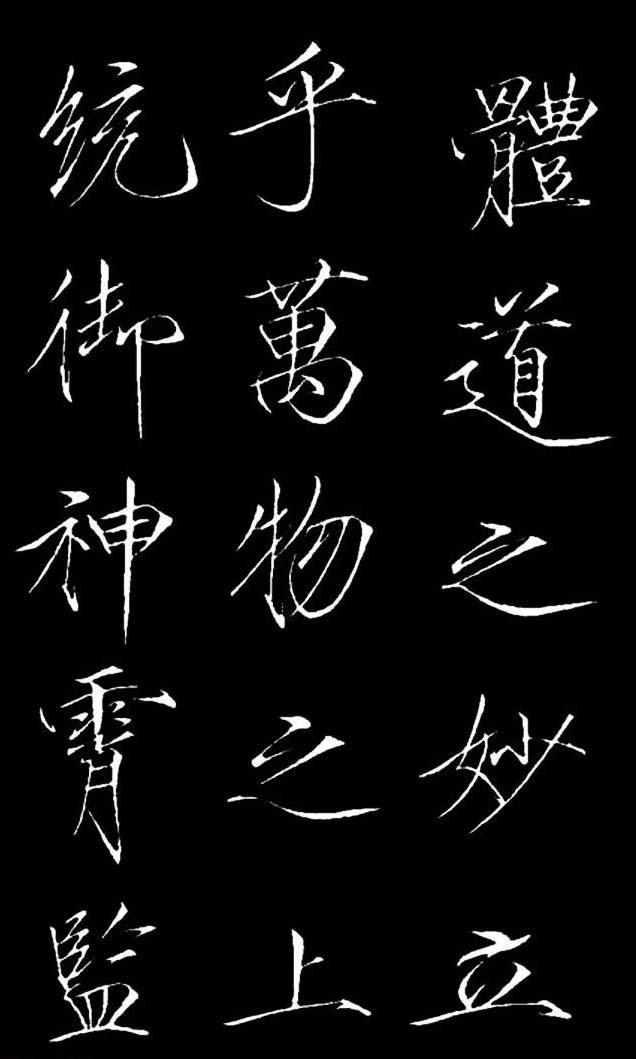 體道之妙立
乎萬物之上
統御神霄監